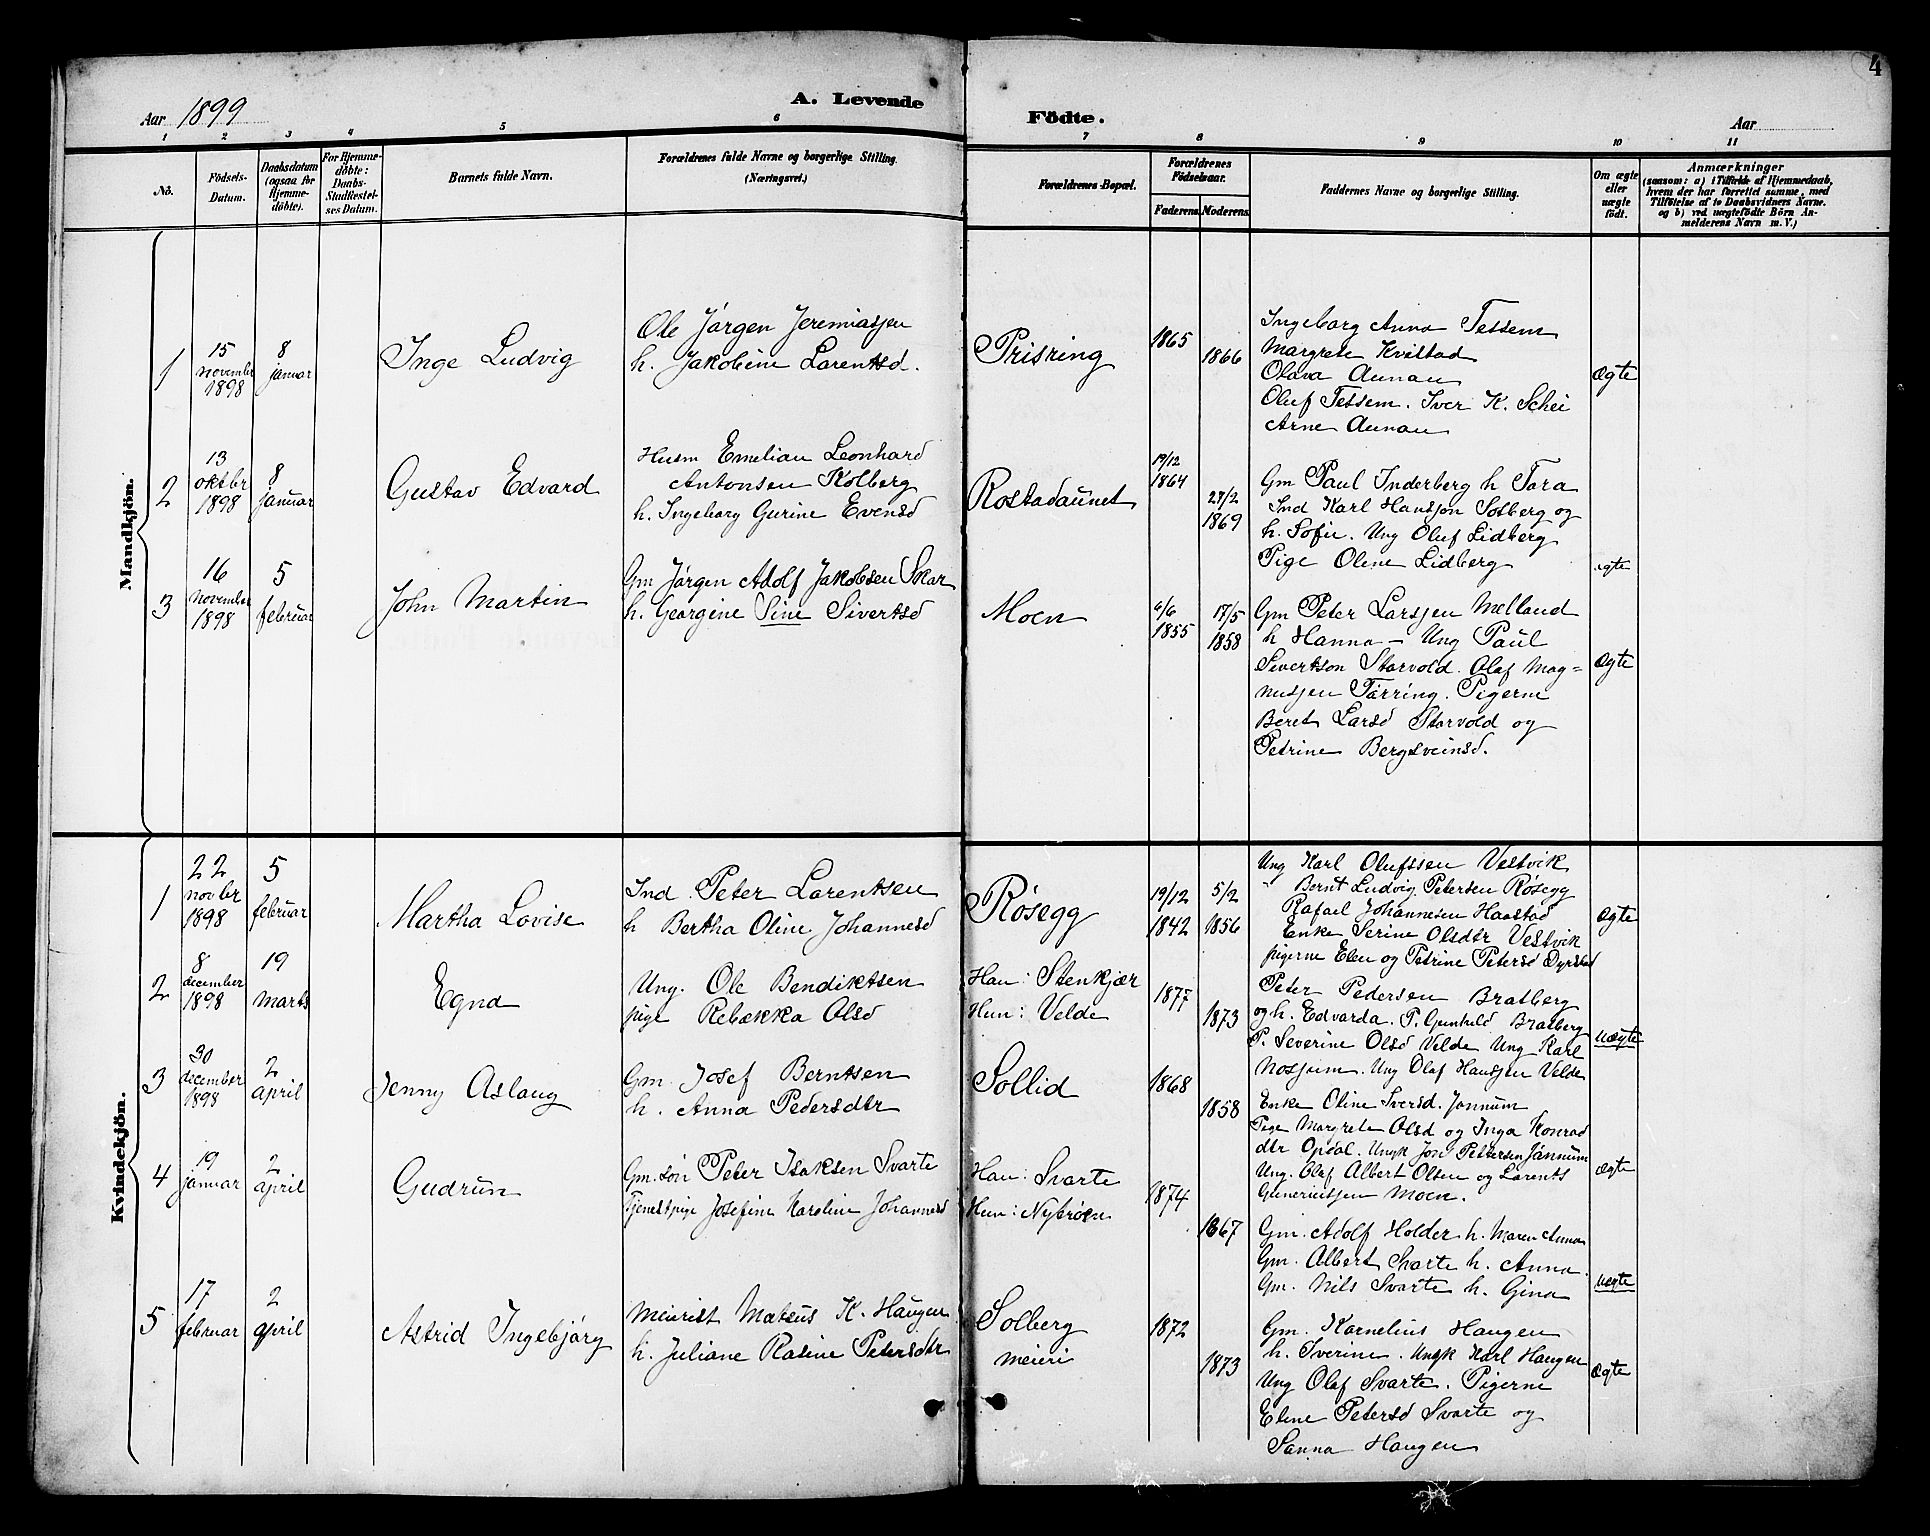 4
Aar 1899
A. Levende
Födte.
Aar
1 2 3 4 5 6 7 8 9 10 11
No.
Födsels-
Datum.
Daabsdatum
(ogsaa for
Hjemme-
döbte).
For Hjemme-
döbte:
Daabs-
Stadfestel-
ses Datum.
Barnets fulde Navn.
Forældrenes fulde Navne og borgerlige Stilling.
(Næringsvei.)
Forældrenes Bopæl.
Forældrenes
Födselsaar.
Faderens. Moderens.
Faddernes Navne og borgerlige Stilling.
Om ægte
eller
uægte
födt.
Anmærkninger
(saasom: a) i Tilfælde af Hjemmedaab,
hvem der har forrettet samme, med
Tilföielse af to Daabsvidners Navne,
og b) ved uægtefödte Börn An-
melderens Navn m. V.)
Mandkjön.
1
15
november
1898
8
januar
Inge Ludvig
Ole Jörgen Jeremiassen
h. Jakobine Larentsd.
Prisring
1865
1866
Ingeborg Anna Tessem
Margrete Kvistad
Olava Aunan
Oluf Tessem. Iver K. Schei
Arne Aunan
Ægte
2
13
oktbr
1898
8
januar
Gustav Edvard
Husm Emelian Leonhard
Antonsen Kolberg
h. Ingeborg Gurine Evensd
Rostadaunet
19/12
1864
27/2
1869
Gm Paul Inderberg h Tora
Ind Karl Hansson Solberg og
h. Sofie. Ung Oluf Lidberg
Pige Oline Lidberg
ægte
3
16
november
1898
5
februar
John Martin
Gm Jörgen Adolf Jakobsen Skar
h. Georgine Sine Sivertsd
Moen
6/6
1855
17/5
1858
Gm Peter Larssen Melland
h Hanna – Ung Paul
Sivertson Starvold. Olaf Mag=
nussen Tørring. Pigerne
Beret Larsd Starvold og
Petrine Bergsveinsd.
Ægte
Kvindekjön.
1
22
novbr
1898
5
februar
Martha Lovise
Ind. Peter Larentsen
h Bertha Oline Johannesd
Røsegg
19/12
1842
5/2
1856
Ung Karl Olufssen Vestvik
" Bernt Ludvig Petersen Røsegg
Rafael Johannesen Haastad
Enke Serine Olsdtr Vestvik
pigerne Elen og Petrine Petersd Dyrstad
Ægte
2
8
december
1898
19
marts
Egna
Ung. Ole Bendiktsen
pige Rebækka Olsd
Han: Stenkjær
Hun: Velde
1877
1873
Peter Pedersen Bratberg
og h. Edvarda. P. Gunhild Bratberg
P. Severine Olsd Velde Ung Karl
Mosseim. Ung Olaf Hanssen Velde
uægte
3
30
december
1898
2
april
Jenny Aslaug
Gm. Josef Berntsen
h. Anna Pedersdtr
Sollid
1868
1858
Enke Oline Iversd. Jønnum
Pige Margrete Olsd og Inga Konrad
dtr Opdal. Ungk Jon Pettersen Jønnum
Ung. Olaf Albert Olsen og Larents
Gunerinssen Moen.
Ægte
4
19
januar
2
april
Gudrun
Gm. søn Peter Isaksen Svarte
Tjenestpige Josefine Karoline Johannesd
Han: Svarte
Hun: Nybrøen
1874
1867
Gm. Adolf Holder h. Maren Anna
Gm. Albert Svarte h. Anna.
Gm. Nils Svarte h. Gina
uægte
5
17
februar
2
april
Astrid Ingebjörg
Meierist Mateus K. Haugen
h. Juliane Rasine Petersdtr
Solberg
meieri
1872
1873
Gm. Kornelius Haugen
h. Iverine. Ungk Karl Haugen
Ung Olaf Svarte. Pigerne
Eline Petersd Svarte og
Sanna Haugen
Ægte